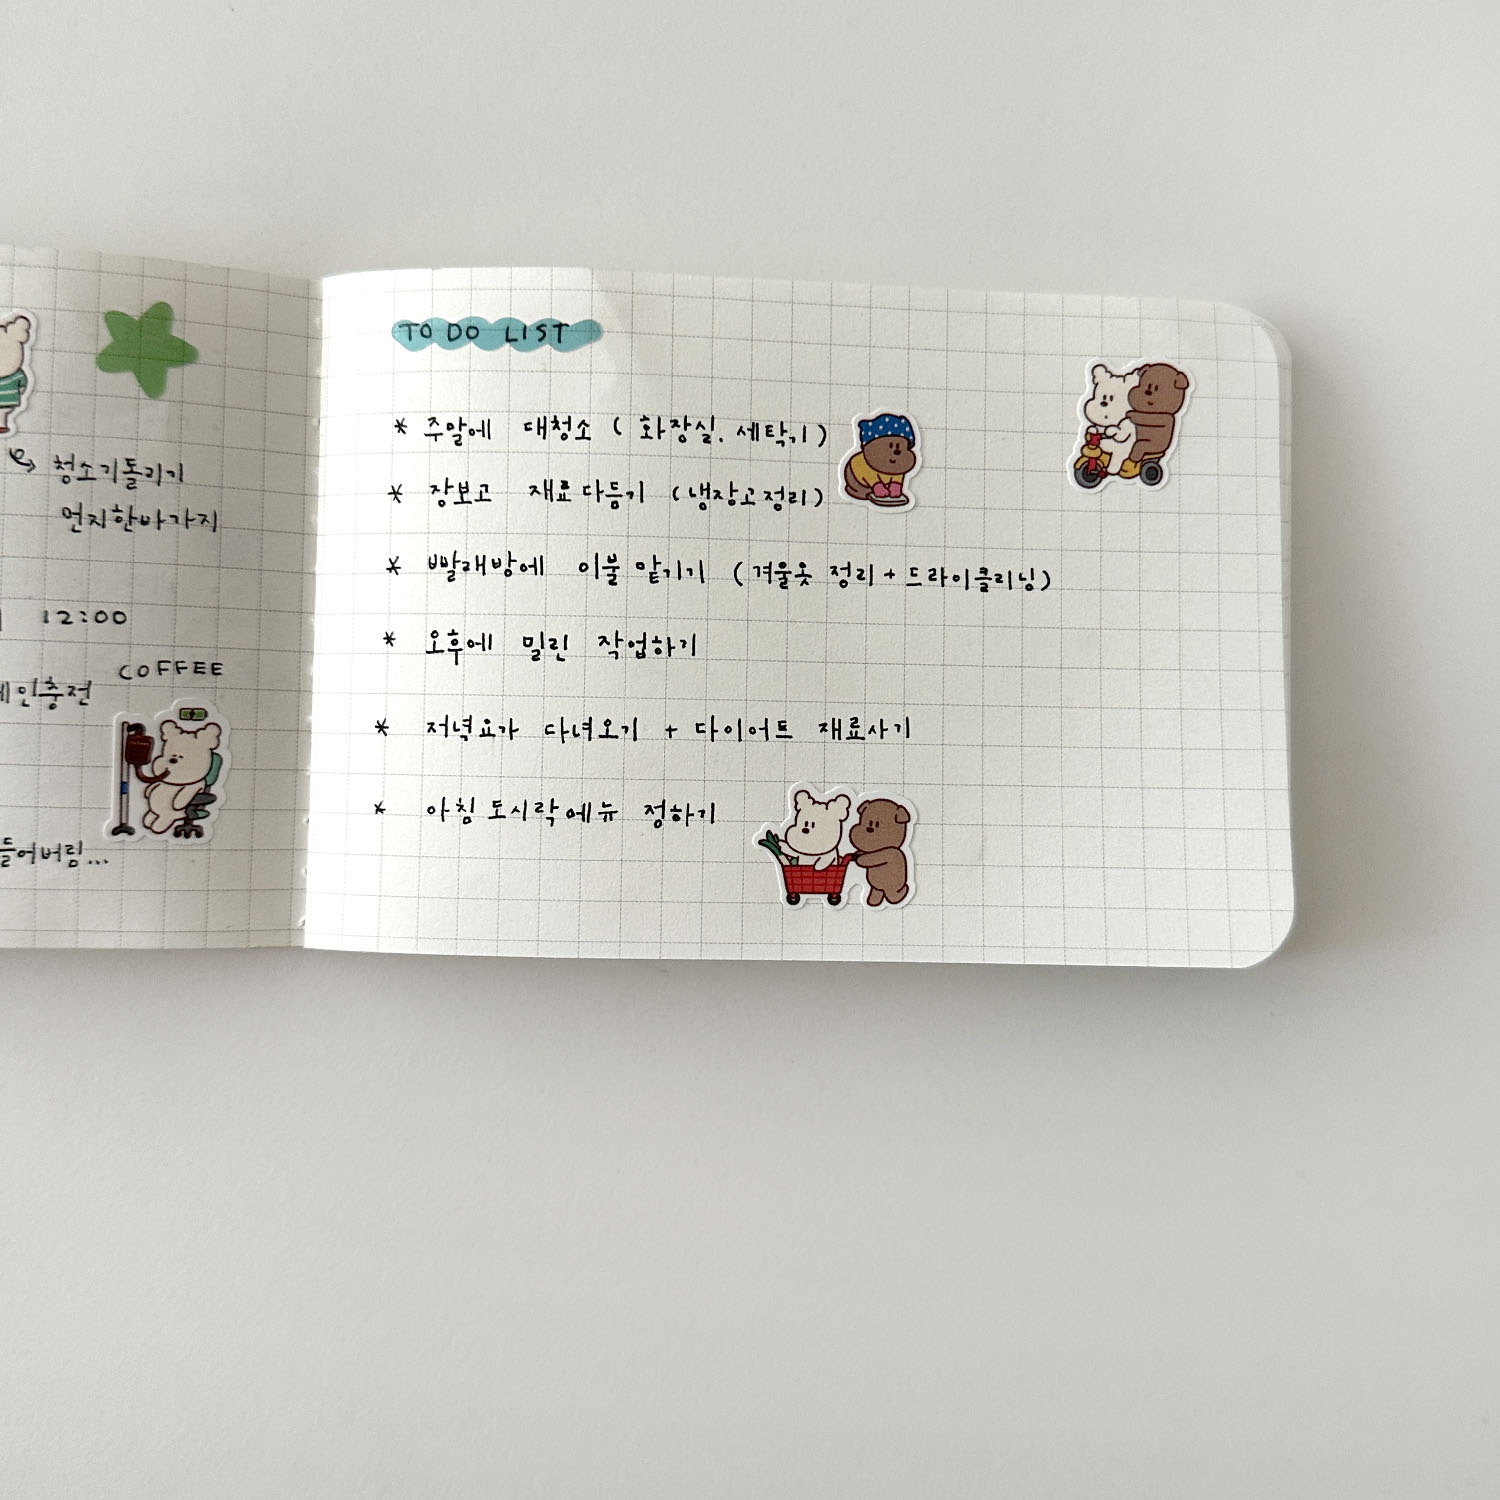 청소기돌리기
먼지한바가지
12:00
COFFEE
인충전
들어버림...
TO DO LIST
* 주말에 대청소 ( 화장실. 세탁기 )
* 장보고 재료다듬기 ( 냉장고정리 )
* 빨래방에 이불 맡기기 ( 겨울옷 정리 + 드라이클리닝 )
* 오후에 밀린 작업하기
* 저녁요가 다녀오기 + 다이어트 재료사기
* 아침 도시락메뉴 정하기